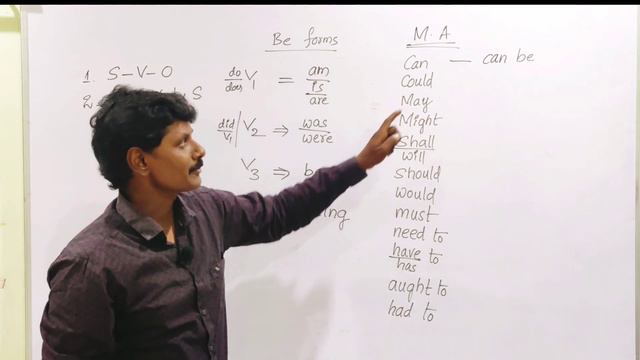 Be forms
M. A
1. S-V-O
2. S
do
does V1 = am
is
are
did
V1 V2 ⇒ was
were
V3 ⇒
Can — can be
Could
May
Might
Shall
will
should
would
must
need to
have to
has
aught to
had to